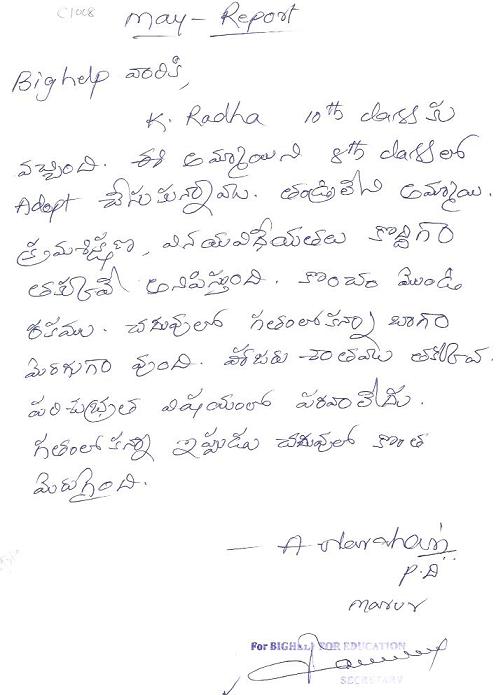 C1008
May - Report
Bighelp వారికి,
K. Radha 10th class కు
వచ్చింది. ఈ అమ్మాయిని 8th class లో
Adopt చేసుకున్నారు. తండ్రిలేని అమ్మాయి.
క్రమశిక్షణ, వినయవిధేయతలు కొద్దిగా
తక్కువే అనిపిస్తుంది. కొంచం మొండి
రకము. చదువులో గతంలోకన్నా బాగా
మెరుగుగా వుంది. హాజరు శాతము తక్కువ.
పరిశుభ్రత విషయంలో పరవాలేదు.
గతంలోకన్నా ఇప్పుడు చదువులో కొంత
మెరుగైంది.
- A
P.D
Marur
For BIGHELP FOR EDUCATION
SECRETARY